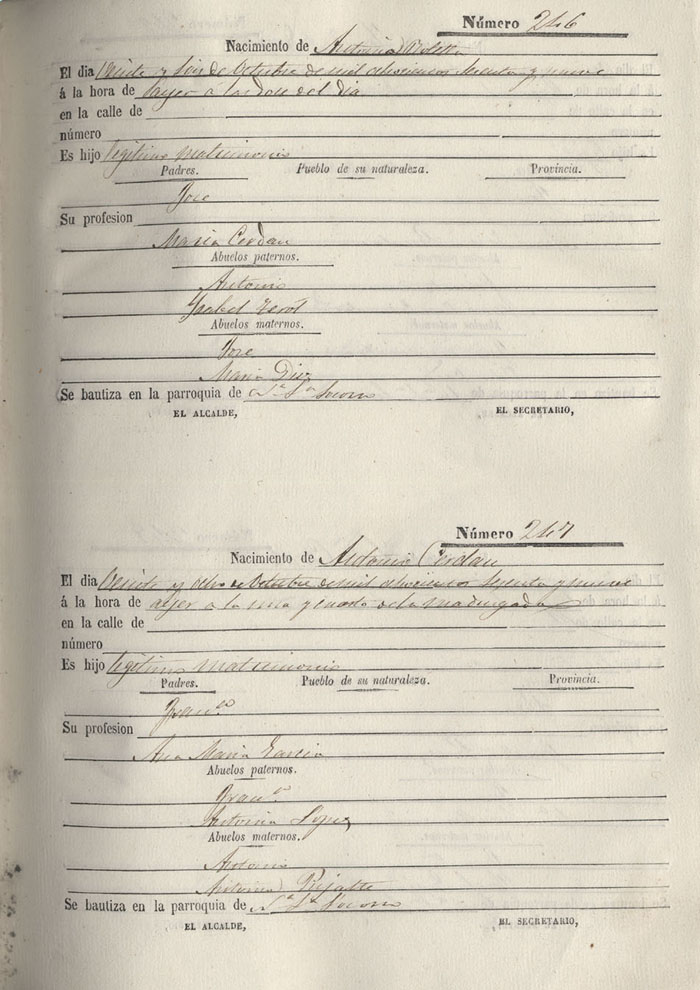 Número 246
Nacimiento de Antonio
El dia Veinte y seis de Octubre de mil ochocientos sesenta y nueve
á la hora de ayer a las doce del dia
en la calle de
número
Es hijo legitimo matrimonio
Padres. Pueblo de su naturaleza. Provincia.
Jose
Su profesion
Maria Cerdan
Abuelos paternos.
Antonio
Ysabel Terol
Abuelos maternos.
Jose
Maria Diez
Se bautiza en la parroquia de Nª Sª Socorro
EL ALCALDE, EL SECRETARIO,
Número 247
Nacimiento de Antonio Cerdan
El dia Veinte y ocho de Octubre de mil ochocientos sesenta y nueve
á la hora de ayer a la una y cuarto de la madrugada
en la calle de
número
Es hijo legitimo matrimonio
Padres. Pueblo de su naturaleza. Provincia.
Franco
Su profesion
Ana Maria Garcia
Abuelos paternos.
Franco
Antonia Lopez
Abuelos maternos.
Antonio
Antonia
Se bautiza en la parroquia de Nª Sª Socorro
EL ALCALDE, EL SECRETARIO,